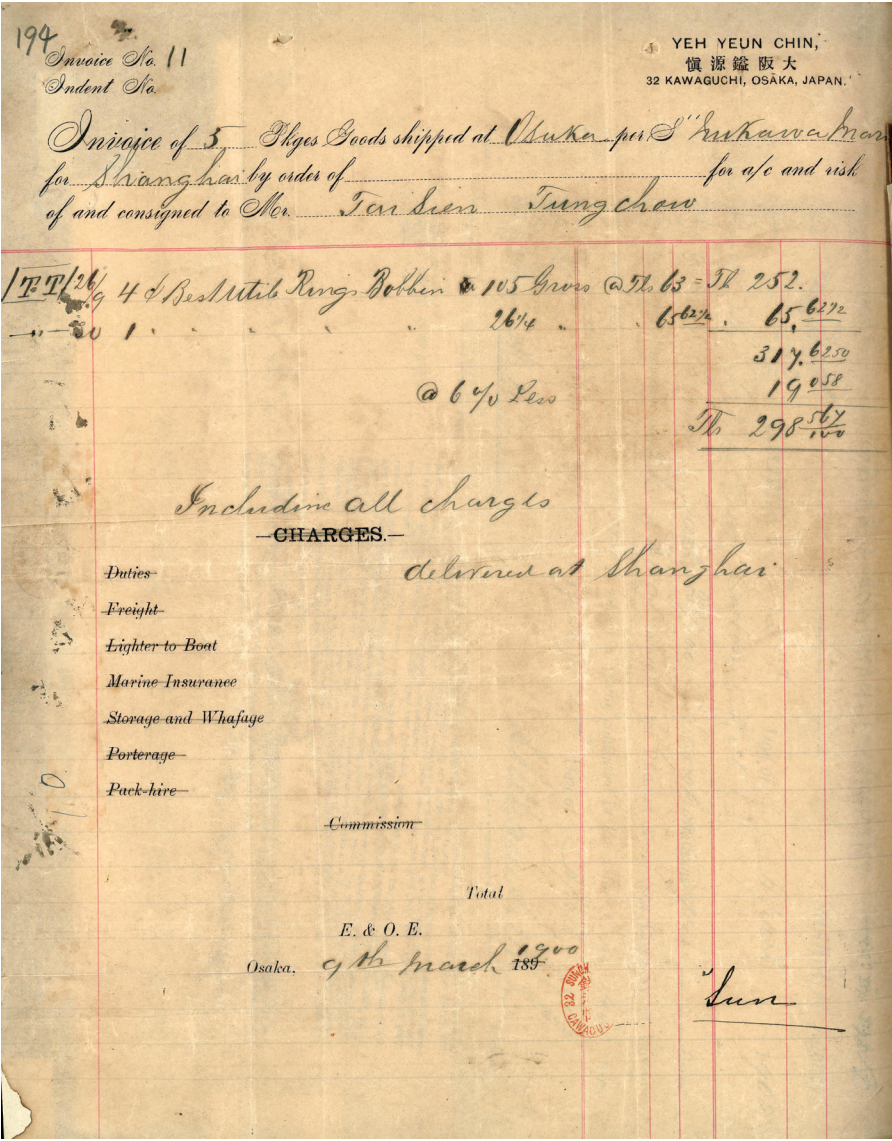 194
Invoice No. 11
Indent No.
YEH YEUN CHIN,
愼源鎰阪大
32 KAWAGUCHI, OSÄKA, JAPAN.
Invoice of 5 Pkges Goods shipped at Osaka per S"
for Shanghai by order of for a/c and risk
of and consigned to Mr. Tai Sien Tungchow
T.T. 26/9 4 Best Rings Bobbin 105 Gross @ Tls 63 = Tls 252.
" 30 1 " " " " 26 1/4 " 65 62 1/2 " 65. 62 1/2
317. 6250
@ 6 % Less 19 058
Tls 298 567/100
Including all charges
CHARGES.
delivered at Shanghai
Duties
Freight
Lighter to Boat
Marine Insurance
Storage and Whafage
Porterage
Pack-hire
Commission
Total
E. & O. E.
Osaka, 9th March 189 1900
32
Sun